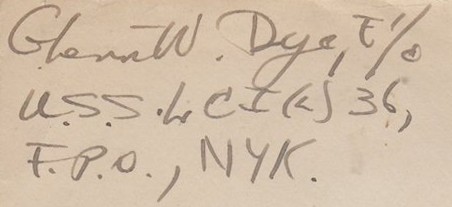 Glenn W. Dye, F 1/c
U.S.S. L C I (L) 36,
F.P.O., NYK.